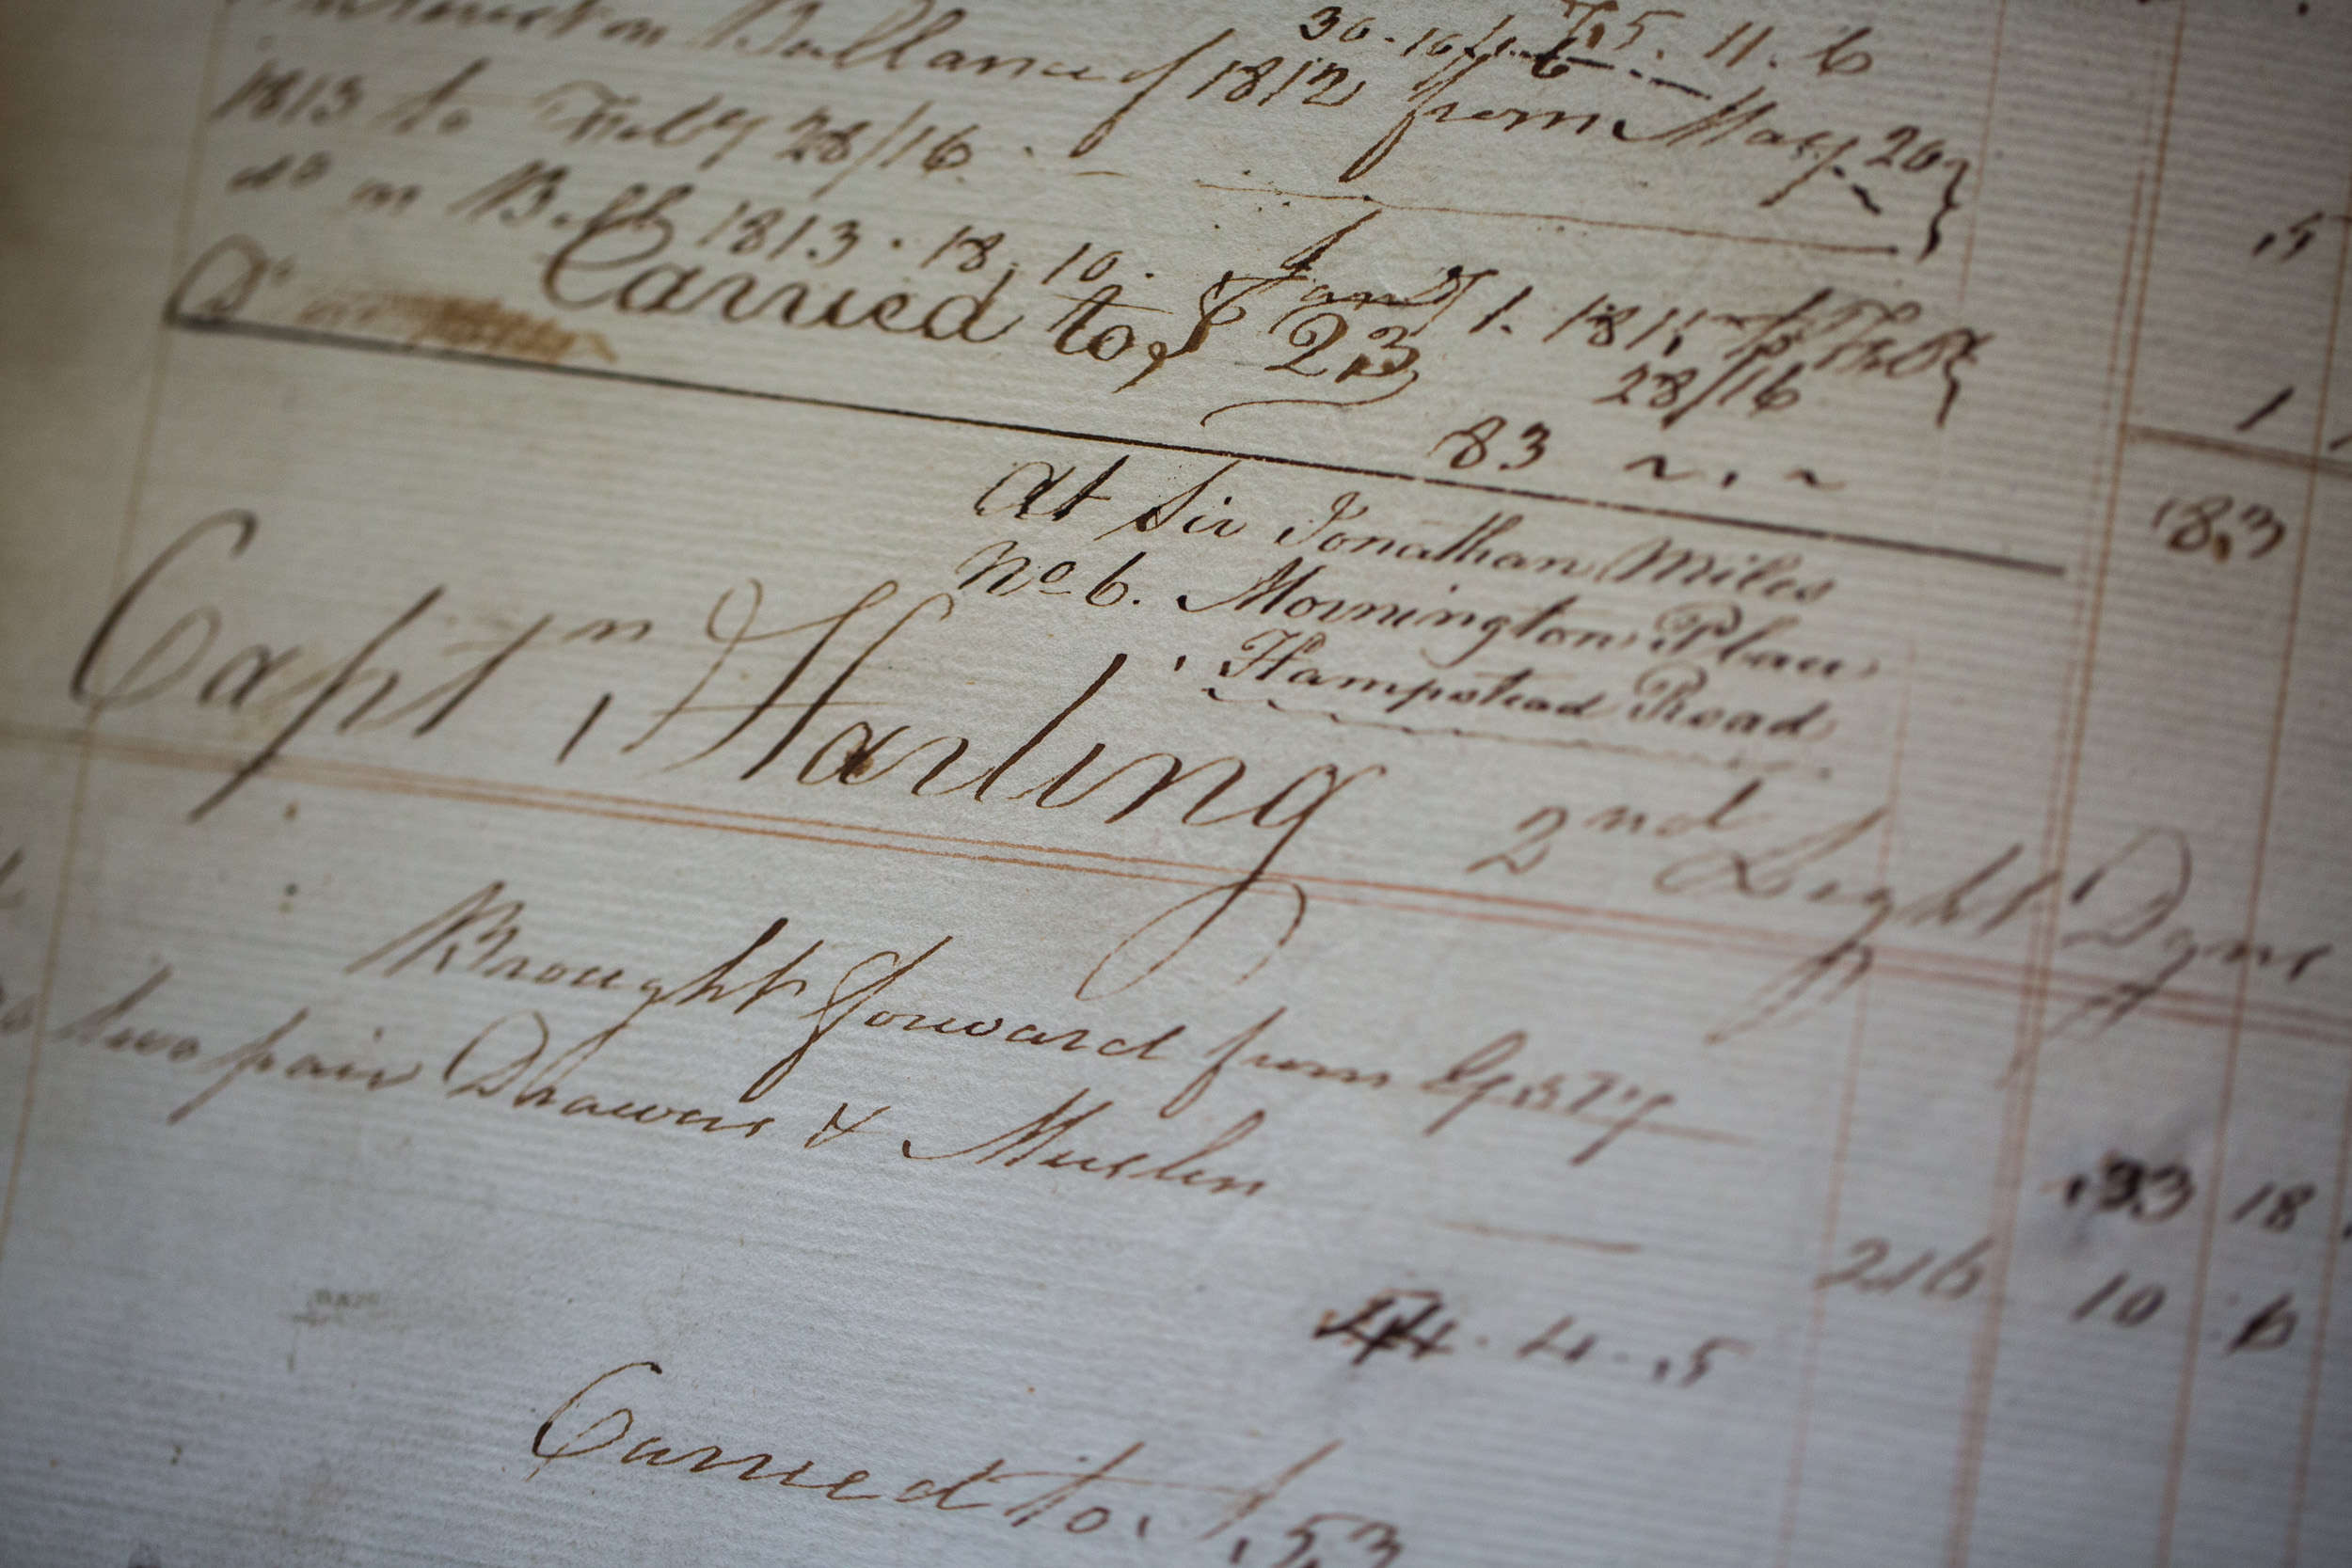 30 . 10 . 6 75 . 11 . 6
Interest on Ballance of 1812 from May 20
1813 to Feby 28/16
do on Bill 1813 . 18 , 10 . Jany 1. 1815 to Feby
28/16
Do
Carried to 23
83 ~ . ~
83
At Sir Jonathan Miles
No 6. Mornington Place
Hampstead Road
Captn Harling 2nd Light Dgns
Brought forward from 377 33 18
two pair Drawers & Muslin 216 10 6
44 . 4 . 5
Carried to 53